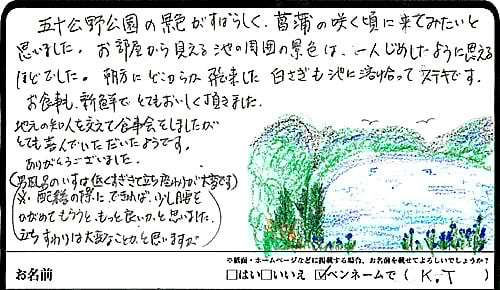 五十公野公園の景色がすばらしく、菖蒲の咲く頃に来てみたいと
思いました。お部屋から見える池の周囲の景色は、一人じめしたように思える
ほどでした。朝方にどこからか飛来した白さぎも池に溶け合ってステキです。
お食事も新鮮でとてもおいしく頂きました。
地元の知人を交えて食事会をしましたが
とても喜んでいただいたようです。
ありがとうございました。
(男風呂のいすは低くすぎて立ち座わりが大変です)
※配膳の際にできれば、少し腰を
かがめてもらうと、もっと良いか、と思いました。
立ちすわりは大変なことかと思いますが
※紙面・ホームページなどに掲載する場合、お名前を載せてよろしいでしょうか?
お名前 □はい □いいえ ☑ペンネームで ( K.T )